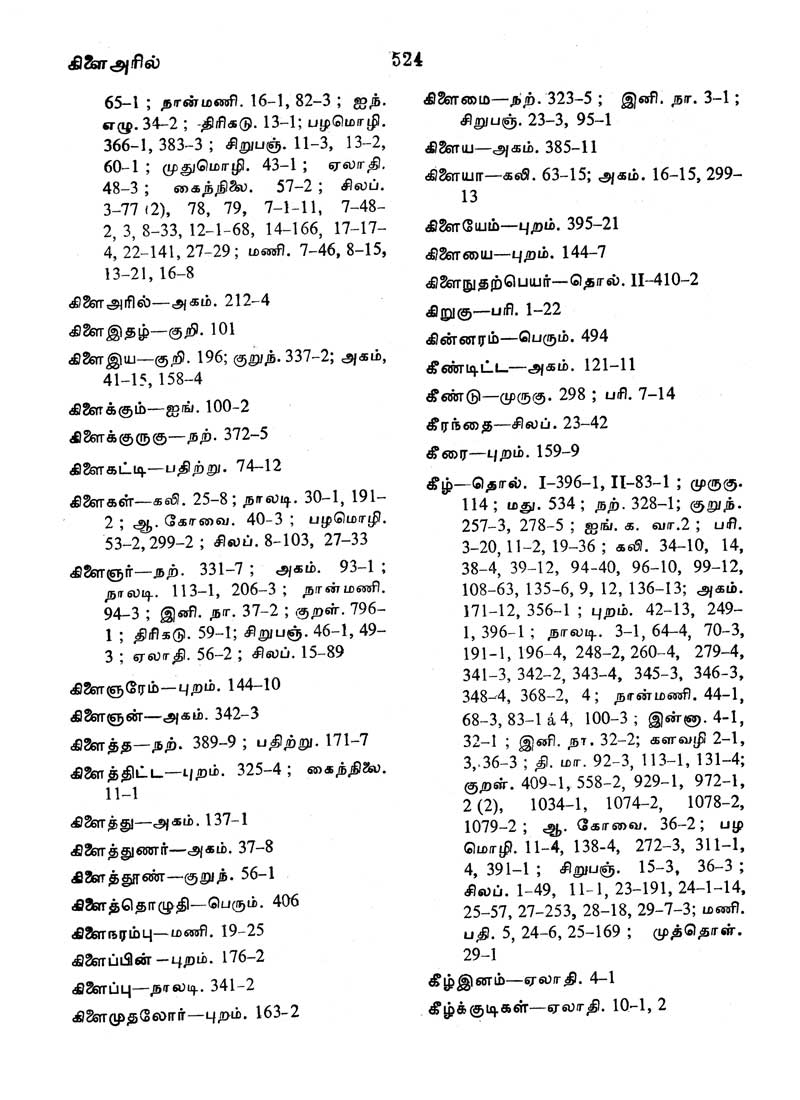 கிளைஅரில்
524
65–1 ; நான்மணி. 16–1, 82–3 ; ஐந்.
எழு. 34–2 ; திரிகடு. 13–1; பழமொழி.
366–1, 383–3 ; சிறுபஞ். 11–3, 13–2,
60–1 ; முதுமொழி. 43–1 ; ஏலாதி.
48–3 ; கைந்நிலை. 57–2 ; சிலப்.
3–77 (2), 78, 79, 7–1–11, 7–48–
2, 3, 8–33, 12–1–68, 14–166, 17–17–
4, 22–141, 27–29 ; மணி. 7–46, 8–15,
13–21, 16–8
கிளைஅரில்—அகம். 212–4
கிளைஇதழ்—குறி. 101
கிளைஇய—குறி. 196; குறுந். 337–2; அகம்,
41–15, 158–4
கிளைக்கும்—ஐங். 100–2
கிளைக்குருகு—நற். 372–5
கிளைகட்டி—பதிற்று. 74–12
கிளைகள்—கலி. 25–8 ; நாலடி. 30–1, 191–
2 ; ஆ. கோவை. 40–3 ; பழமொழி.
53–2, 299–2 ; சிலப். 8–103, 27–33
கிளைஞர்—நற். 331–7 ; அகம். 93–1 ;
நாலடி. 113–1, 206–3 ; நான்மணி.
94–3 ; இனி. நா. 37–2 ; குறள். 796–
1 ; திரிகடு. 59–1; சிறுபஞ். 46–1, 49–
3 ; ஏலாதி. 56–2 ; சிலப். 15–89
கிளைஞரேம்—புறம். 144–10
கிளைஞன்—அகம். 342–3
கிளைத்த—நற். 389–9 ; பதிற்று. 171–7
கிளைத்திட்ட—புறம். 325–4 ; கைந்நிலை.
11–1
கிளைத்து—அகம். 137–1
கிளைத்துணர்—அகம். 37–8
கிளைத்தூண்—குறுந். 56–1
கிளைத்தொழுதி—பெரும். 406
கிளைநரம்பு—மணி. 19–25
கிளைப்பின்—புறம். 176–2
கிளைப்பு—நாலடி. 341–2
கிளைமுதலோர்—புறம். 163–2
கிளைமை—நற். 323–5 ; இனி. நா. 3–1 ;
சிறுபஞ். 23–3, 95–1
கிளைய—அகம். 385–11
கிளையா—கலி. 63–15; அகம். 16–15, 299–
13
கிளையேம்—புறம். 395–21
கிளையை—புறம். 144–7
கிளைநுதற்பெயர்—தொல். II–410–2
கிறுகு—பரி. 1–22
கின்னரம்—பெரும். 494
கீண்டிட்ட—அகம். 121–11
கீண்டு—முருகு. 298 ; பரி. 7–14
கீரந்தை—சிலப். 23–42
கீரை—புறம். 159–9
கீழ்—தொல். I–396–1, II–83–1 ; முருகு.
114 ; மது. 534 ; நற். 328–1; குறுந்.
257–3, 278–5 ; ஐங். க. வா.2 ; பரி.
3–20, 11–2, 19–36 ; கலி. 34–10, 14,
38–4, 39–12, 94–40, 96–10, 99–12,
108–63, 135–6, 9, 12, 136–13; அகம்.
171–12, 356–1 ; புறம். 42–13, 249–
1, 396–1 ; நாலடி. 3–1, 64–4, 70–3,
191–1, 196–4, 248–2, 260–4, 279–4,
341–3, 342–2, 343–4, 345–3, 346–3,
348–4, 368–2, 4 ; நான்மணி. 44–1,
68–3, 83–1 & 4, 100–3 ; இன்னா. 4–1,
32–1 ; இனி. நா. 32–2; களவழி 2–1,
3, 36–3 ; தி. மா. 92–3, 113–1, 131–4;
குறள். 409–1, 558–2, 929–1, 972–1,
2 (2), 1034–1, 1074–2, 1078–2,
1079–2 ; ஆ. கோவை. 36–2 ; பழ
மொழி. 11–4, 138–4, 272–3, 311–1,
4, 391–1 ; சிறுபஞ். 15–3, 36–3 ;
சிலப். 1–49, 11–1, 23–191, 24–1–14,
25–57, 27–253, 28–18, 29–7–3; மணி.
பதி. 5, 24–6, 25–169 ; முத்தொள்.
29–1
கீழ்இனம்—ஏலாதி. 4–1
கீழ்க்குடிகள்—ஏலாதி. 10–1, 2